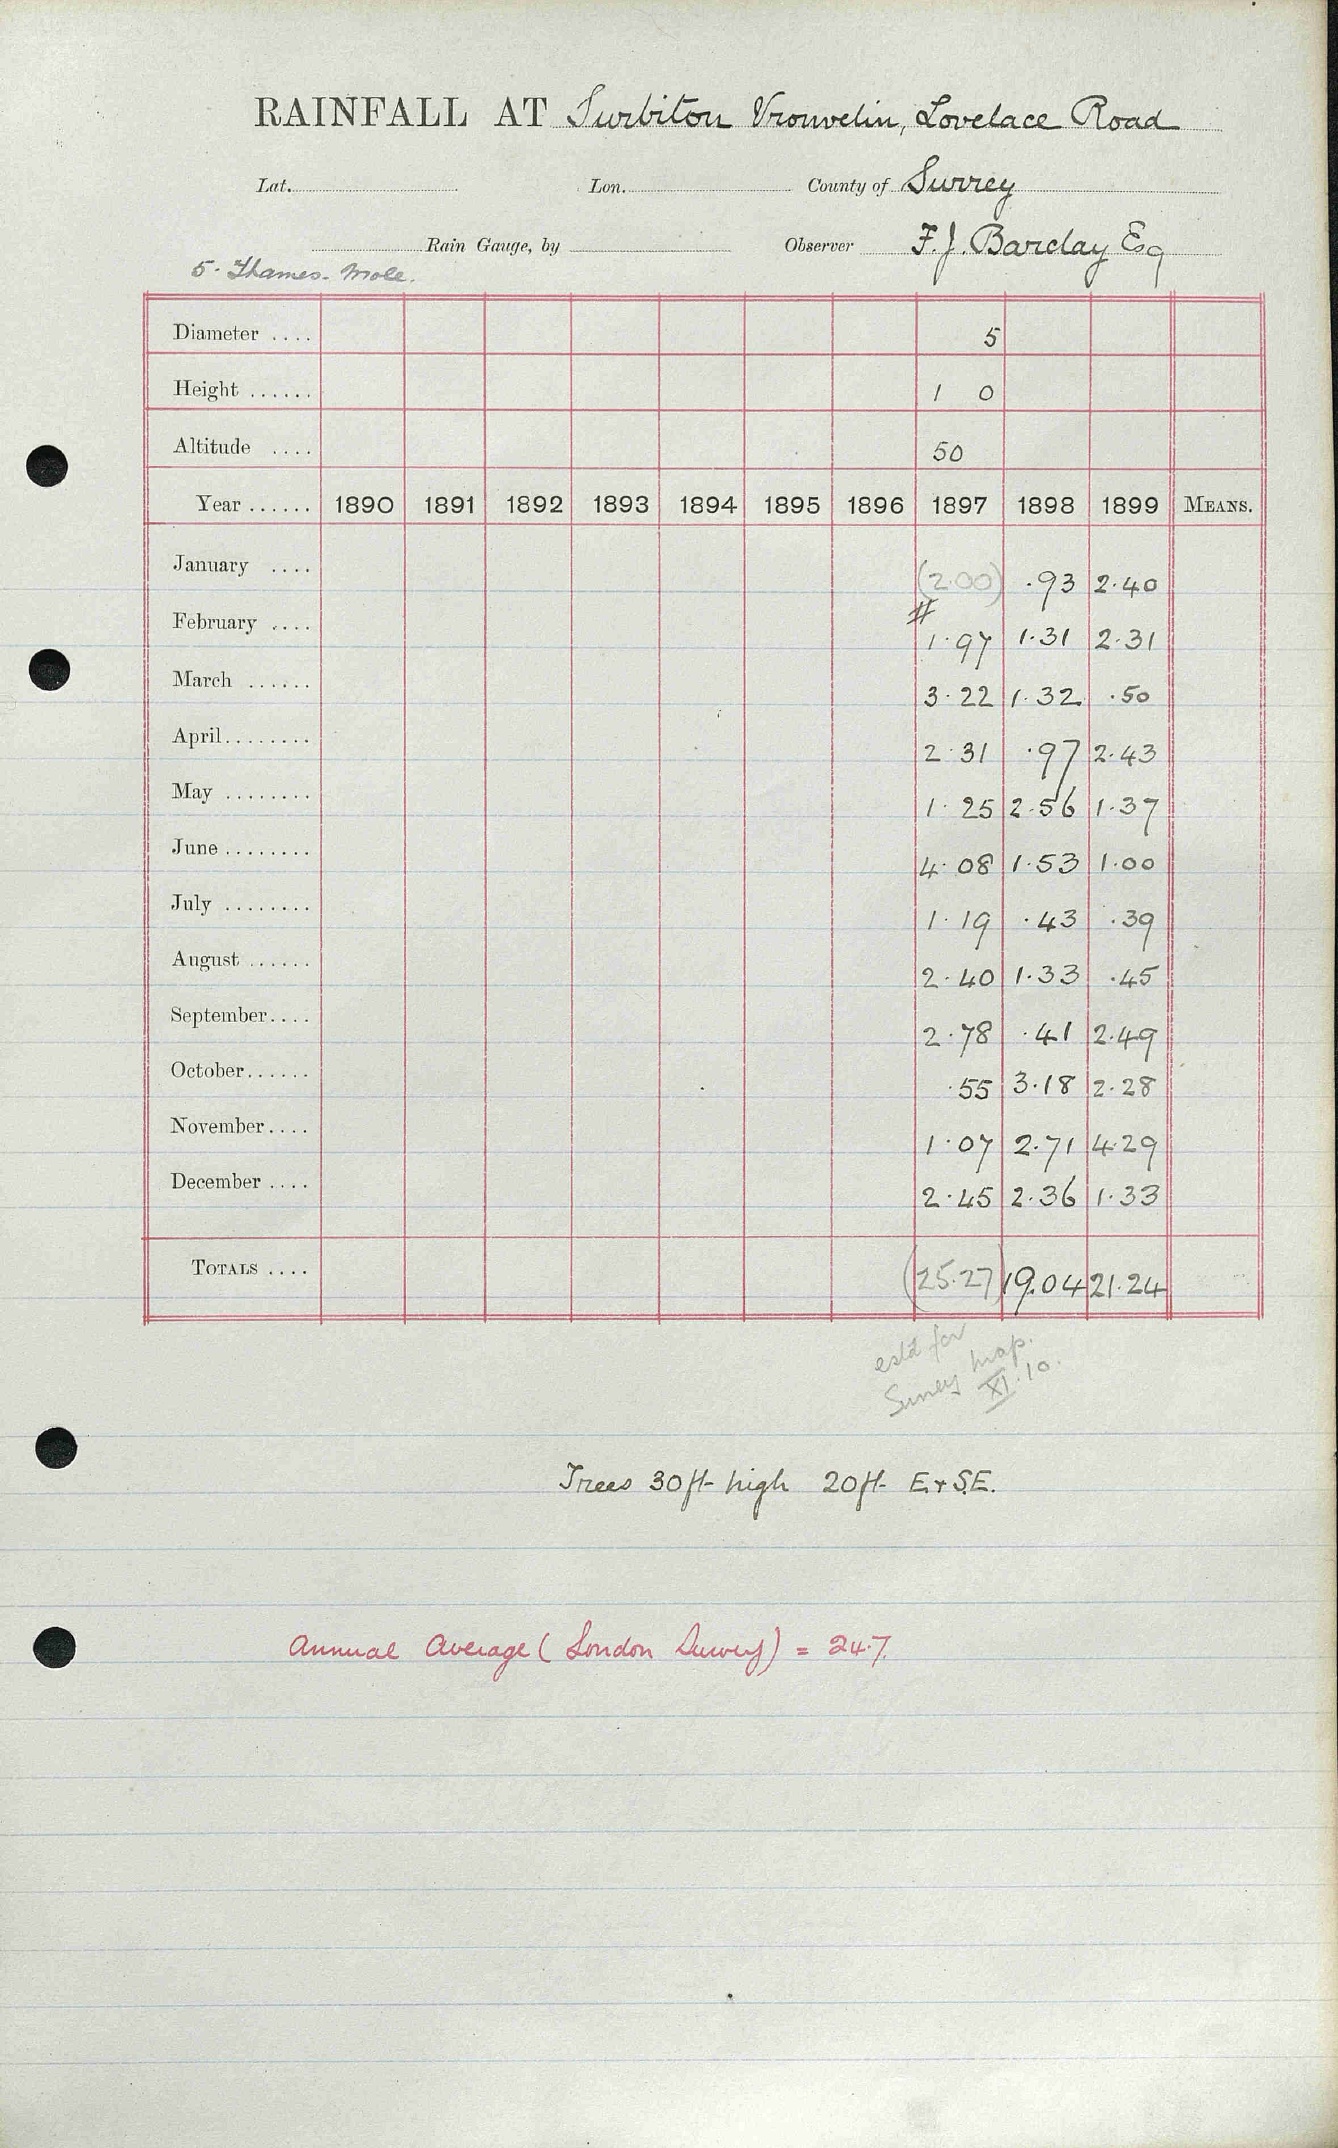 RAINFALL AT Surbiton Vronvelin, Lovelace Road
Lat. Lon. County of Surrey
Rain Gauge, by Observer F.J. Barclay Esq
5. Thames. Mole.
Diameter .... 5
Height ...... 1 0
Altitude .... 50
Year ...... 1890 1891 1892 1893 1894 1895 1896 1897 1898 1899 MEANS.
January .... (2.00) .93 2.40
#
February .... 1.97 1.31 2.31
March ...... 3.22 1.32 .50
April........ 2.31 .97 2.43
May ........ 1.25 2.56 1.37
June ........ 4.08 1.53 1.00
July ........ 1.19 .43 .39
August ...... 2.40 1.33 .45
September.... 2.78 .41 2.49
October...... .55 3.18 2.28
November.... 1.07 2.71 4.29
December .... 2.45 2.36 1.33
TOTALS .... (25.27) 19.04 21.24
estd for
Surrey map.
XI.10.
Trees 30ft high 20ft E + S.E.
Annual Average (London Survey) = 24.7.